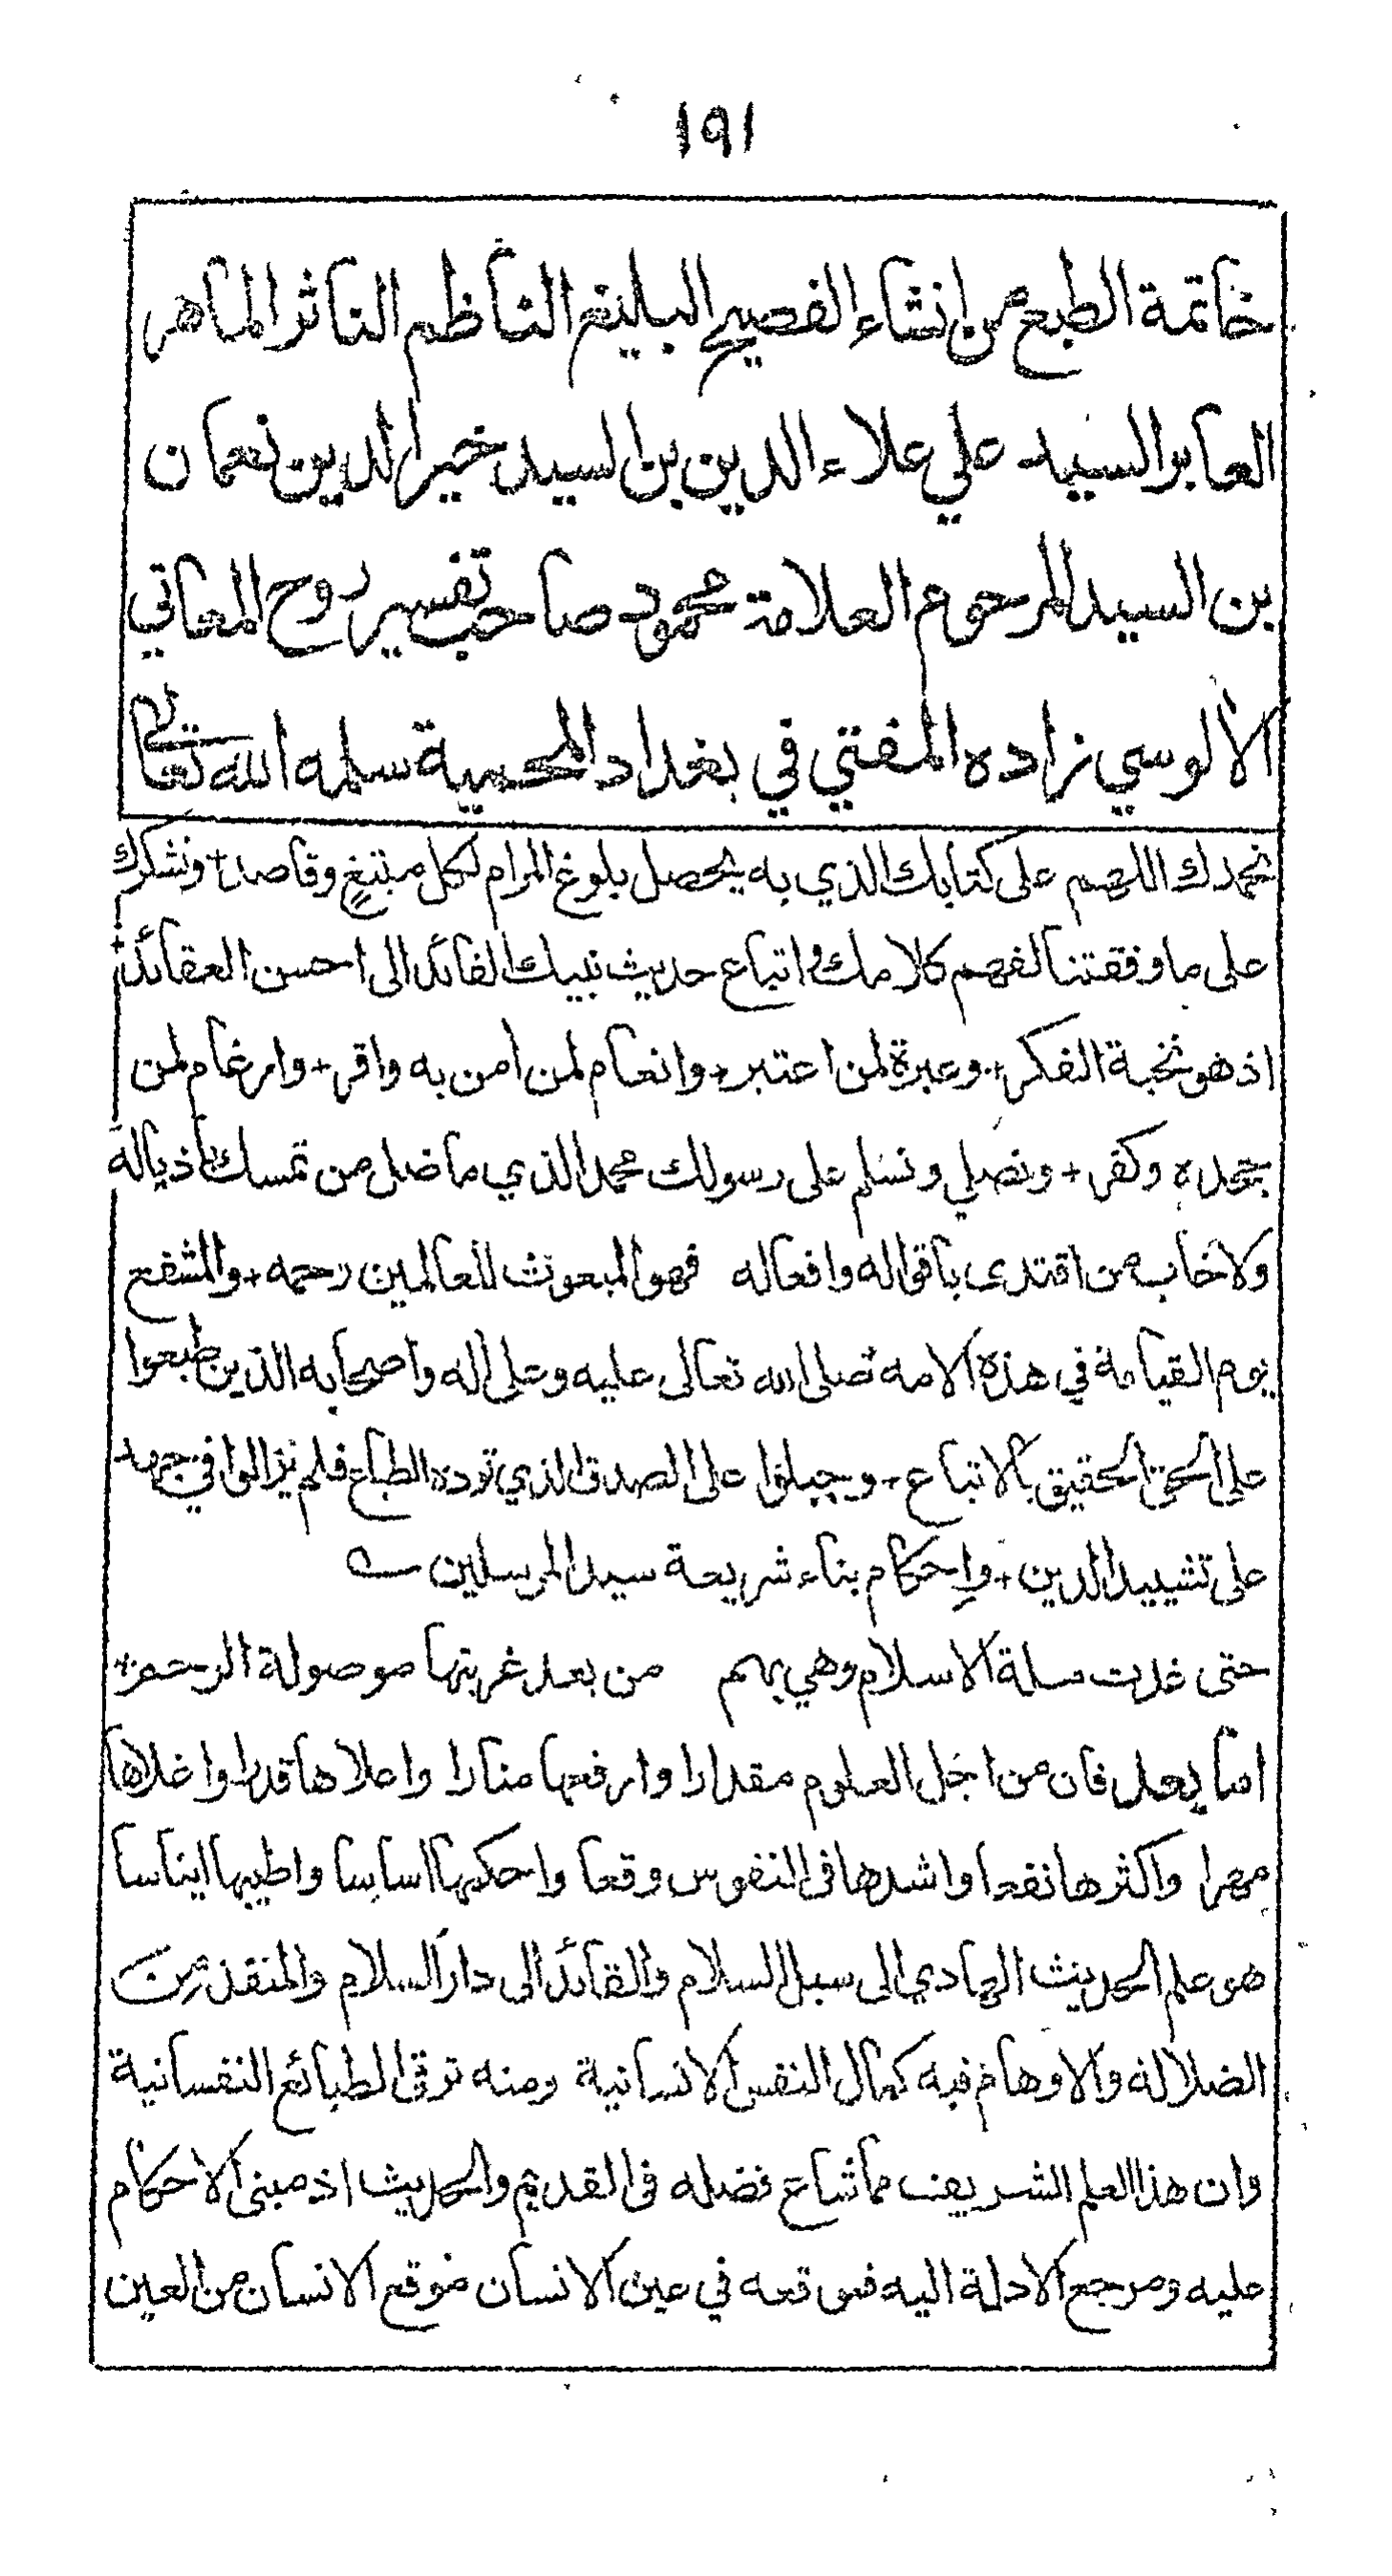 ١٩١
خاتمة الطبع من انشاء الفصيح البليغ الناظم الناثر الماهر
العابر السيد علي علاء الدين بن السيد خير الدين نعمان
بن السيد المرحوم العلامة محمود صاحب تفسير روح المعاني
الالوسي زاده المفتي في بغداد المحمية سلمه الله تعالى
نحمدك اللهم على كتابك الذي به يحصل بلوغ المرام لكل مبتغٍ وقاصد + ونشكرك
على ما وفقتنا لفهم كلامك واتباع حديث نبيك القائد الى احسن العقائد +
اذ هو نخبة الفكر + وعبرة لمن اعتبر + وانعام لمن امن به واقر + وارغام لمن
جحده وكفر + ونصلي ونسلم على رسولك محمد الذي ما ضل من تمسك باذياله
ولا خاب من اقتدى باقواله وافعاله فهو المبعوث للعالمين رحمه + والمشفع
يوم القيامة في هذه الامه صلى الله تعالى عليه وعلى اله واصحابه الذين طبعوا
على الحق الحقيق بالاتباع + وجبلوا على الصدق الذي توده الطباع فلم يزالوا في جهد
على تشييد الدين + وإحكام بناء شريعة سيد المرسلين
حتى غدت ملة الاسلام وهي بهم من بعد غربتها موصولة الرحم +
اما بعد فان من اجل العلوم مقدارا وارفعها منارا واعلاها قدرا واغلاها
مهرا واكثرها نفعا واشدها فى النفوس وقعا واحكمها اساسا واطيبها ايناسا
هو علم الحديث الهادي الى سبل السلام والقائد الى دار السلام والمنقذ من
الضلالة والاوهام فبه كمال النفس الانسانية ومنه ترقى الطبائع النفسانية
وان هذا العلم الشريف مما شاع فضله فى القديم والحديث اذ مبنى الاحكام
عليه ومرجع الادلة اليه فموقعه في عين الانسان موقع الانسان من العين